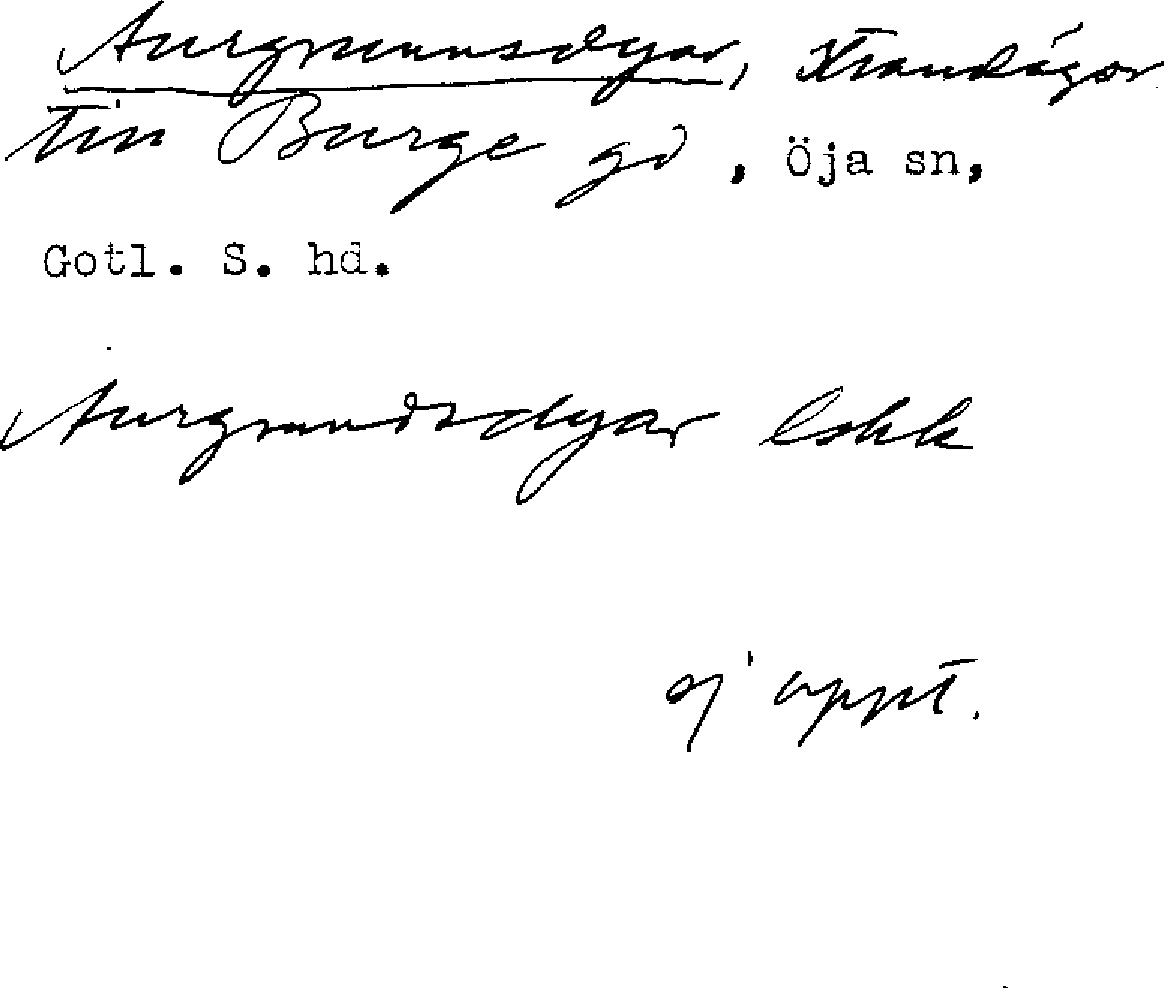 Aurgrunnsdyar, strandägor
till Burge gd, Öja sn,
Gotl. S. hd.
Aurgrundsdyar
ej uppt.